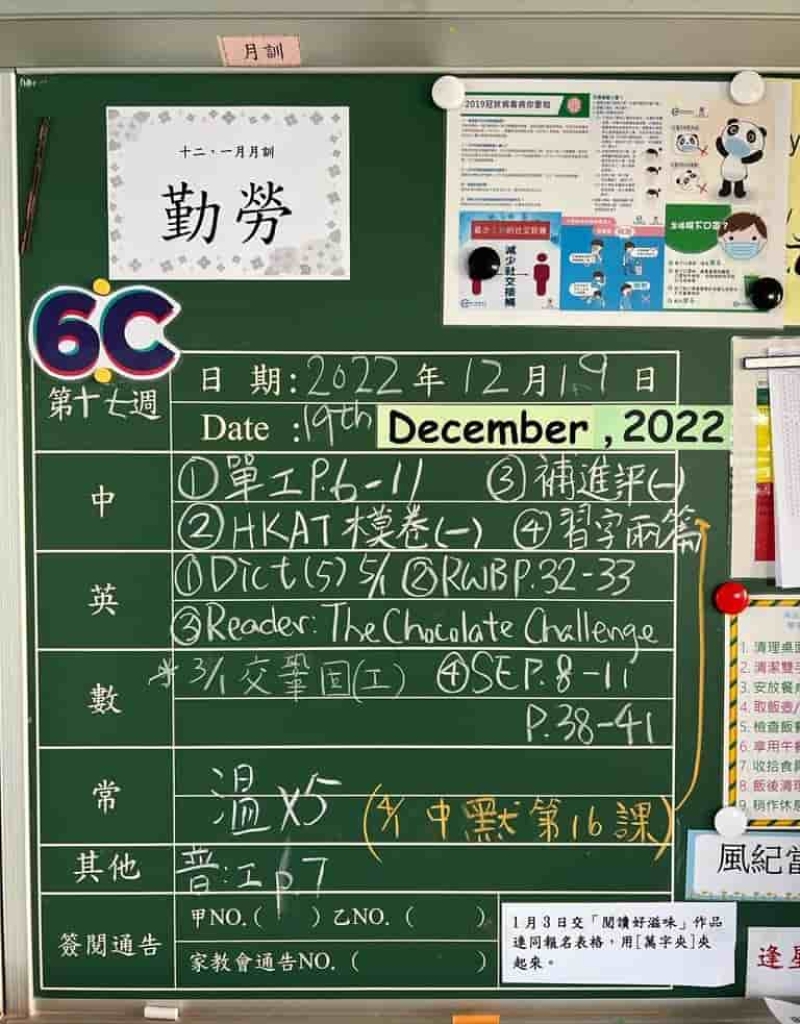 月訓
十二、一月月訓
勤勞
2019冠狀病毒病你要知
減少社交接觸
6C
第十七週
日 期:2022年12月19日
Date :19th December , 2022
中
①單工P.6-11 ③補進評(一)
②HKAT模卷(一) ④習字兩篇
英
①Dict(5) 5/1 ②RWB P.32-33
③Reader: The Chocolate Challenge
數
*3/1交鞏固(工) ④SE P.8-11
P.38-41
常
溫x5
(4/1 中默第16課)
其他
普:工p.7
簽閱通告
甲NO.( ) 乙NO. ( )
家教會通告NO. ( )
1月3日交「閱讀好滋味」作品
連同報名表格，用[萬字夾]夾
起來。
1. 清理桌面
2. 清潔雙手
3. 安放餐
4. 取飯盒/
5. 檢查飯
6. 享用午餐
7. 收拾食具
8. 飯後清理
9. 稍作休息
風紀當
逢星